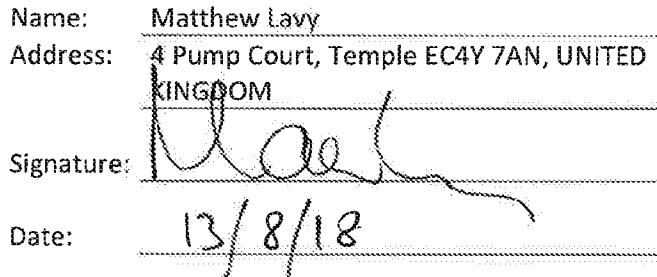 Name: Matthew Lavy
Address: 4 Pump Court, Temple EC4Y 7AN, UNITED
KINGDOM
Signature:
Date: 13/8/18